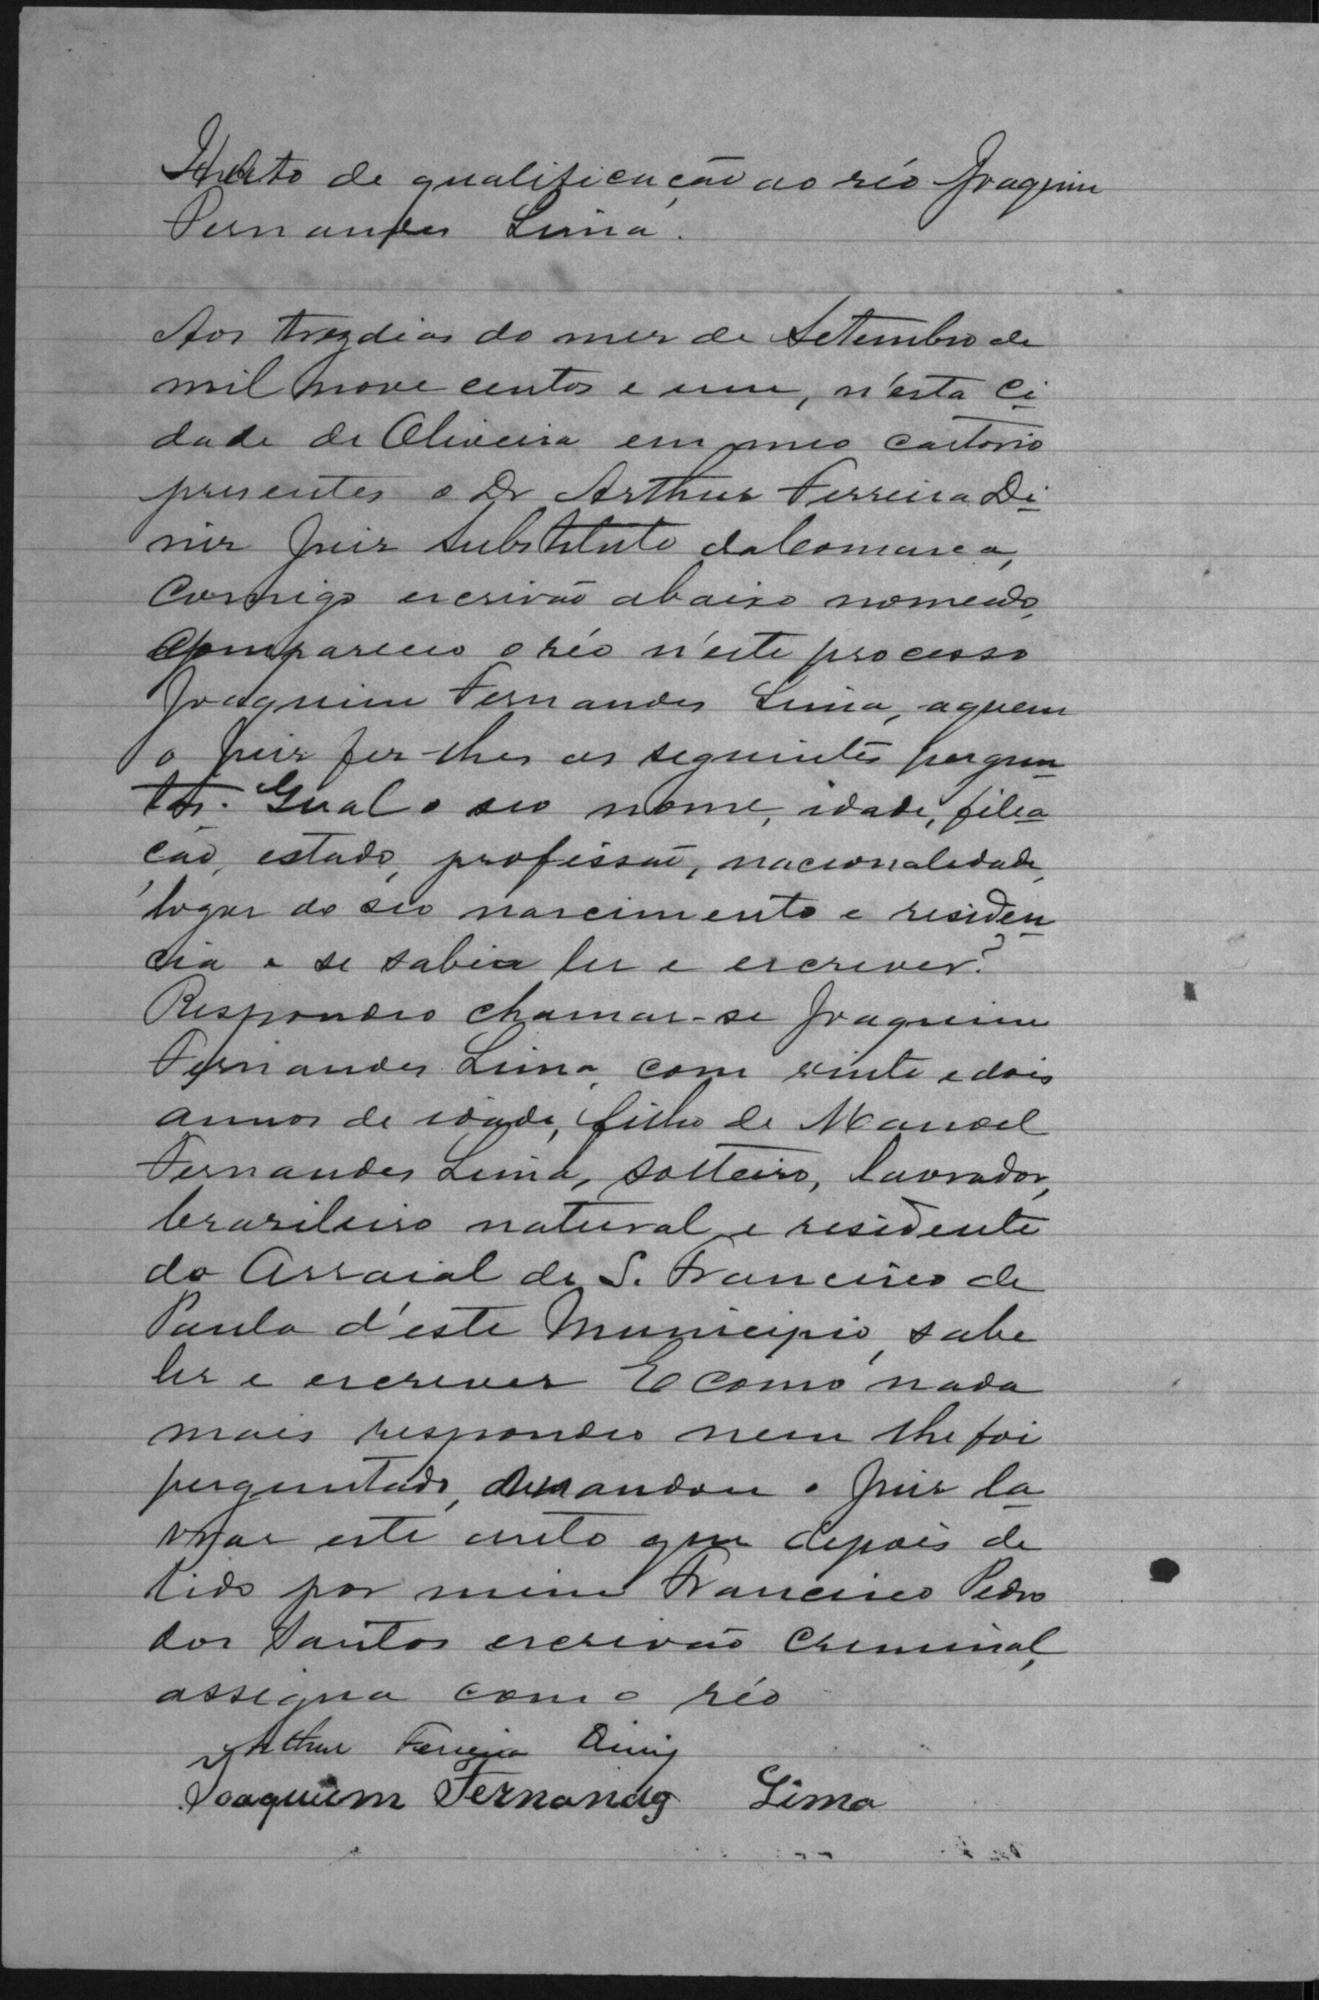 Auto de qualificação ao réo Joaquim
Fernandes Lima.
Aos trez dias do mez de Setembro de
mil nove centos e um, n'esta Ci
dade de Oliveira em meo cartorio
presentes o Dr Arthur Ferreira Di
niz Juiz Substituto da Comarca,
Commigo escrivão abaixo nomeado,
Compareceo o réo n'este processo
Joaquim Fernandes Lima, aquem
o Juiz fez-lhes as seguintes pergun
tas. Qual o seo nome, idade, filia
ção, estado, profissão, nacionalidade,
logar do seo nascimento e residen
cia e se sabia ler e escrever?
Respondeo chamar-se Joaquim
Fernandes Lima, com vinte e dois
annos de idade, filho de Manoel
Fernandes Lima, solteiro, lavrador,
brasileiro natural e residente
do Arraial de S. Francisco de
Paula d'este Municipio, sabe
ler e escrever E como nada
mais respondeo nem lhe foi
perguntado, mandou o Juiz la
vrar este auto que depois de
lido por mim Francisco Pedro
dos Santos escrivão Criminal,
assigna com o réo
Arthur Ferreira Diniz
Joaquim Fernandes Lima